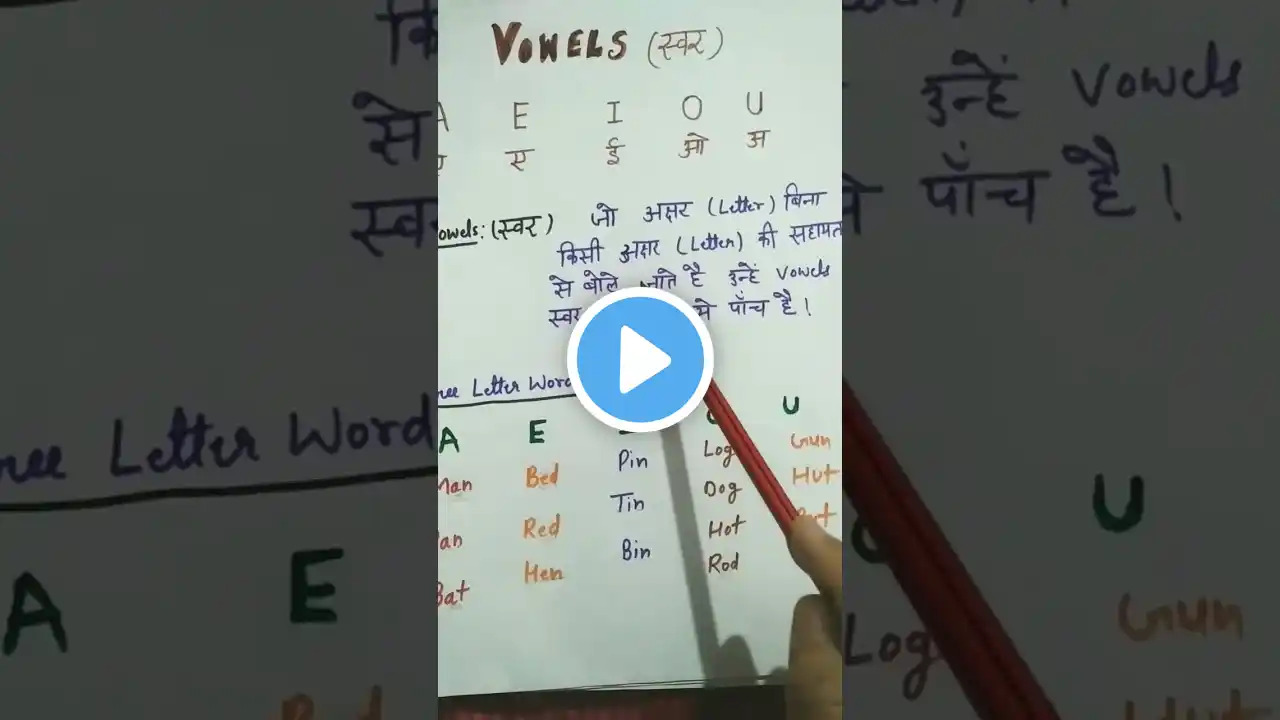 VOWELS (स्वर)
A E I O U
ए ई ओ अ
owels: (स्वर) जो अक्षर (Letter) बिना
किसी अक्षर (Letter) की सहायत
से बोले जाते है उन्हें Vowels
स्वर मे पाँच है!
ree Letter Word
A E U
Man Bed Pin Log Gun
an Red Tin Dog Hut
Bat Hen Bin Hot
Rod